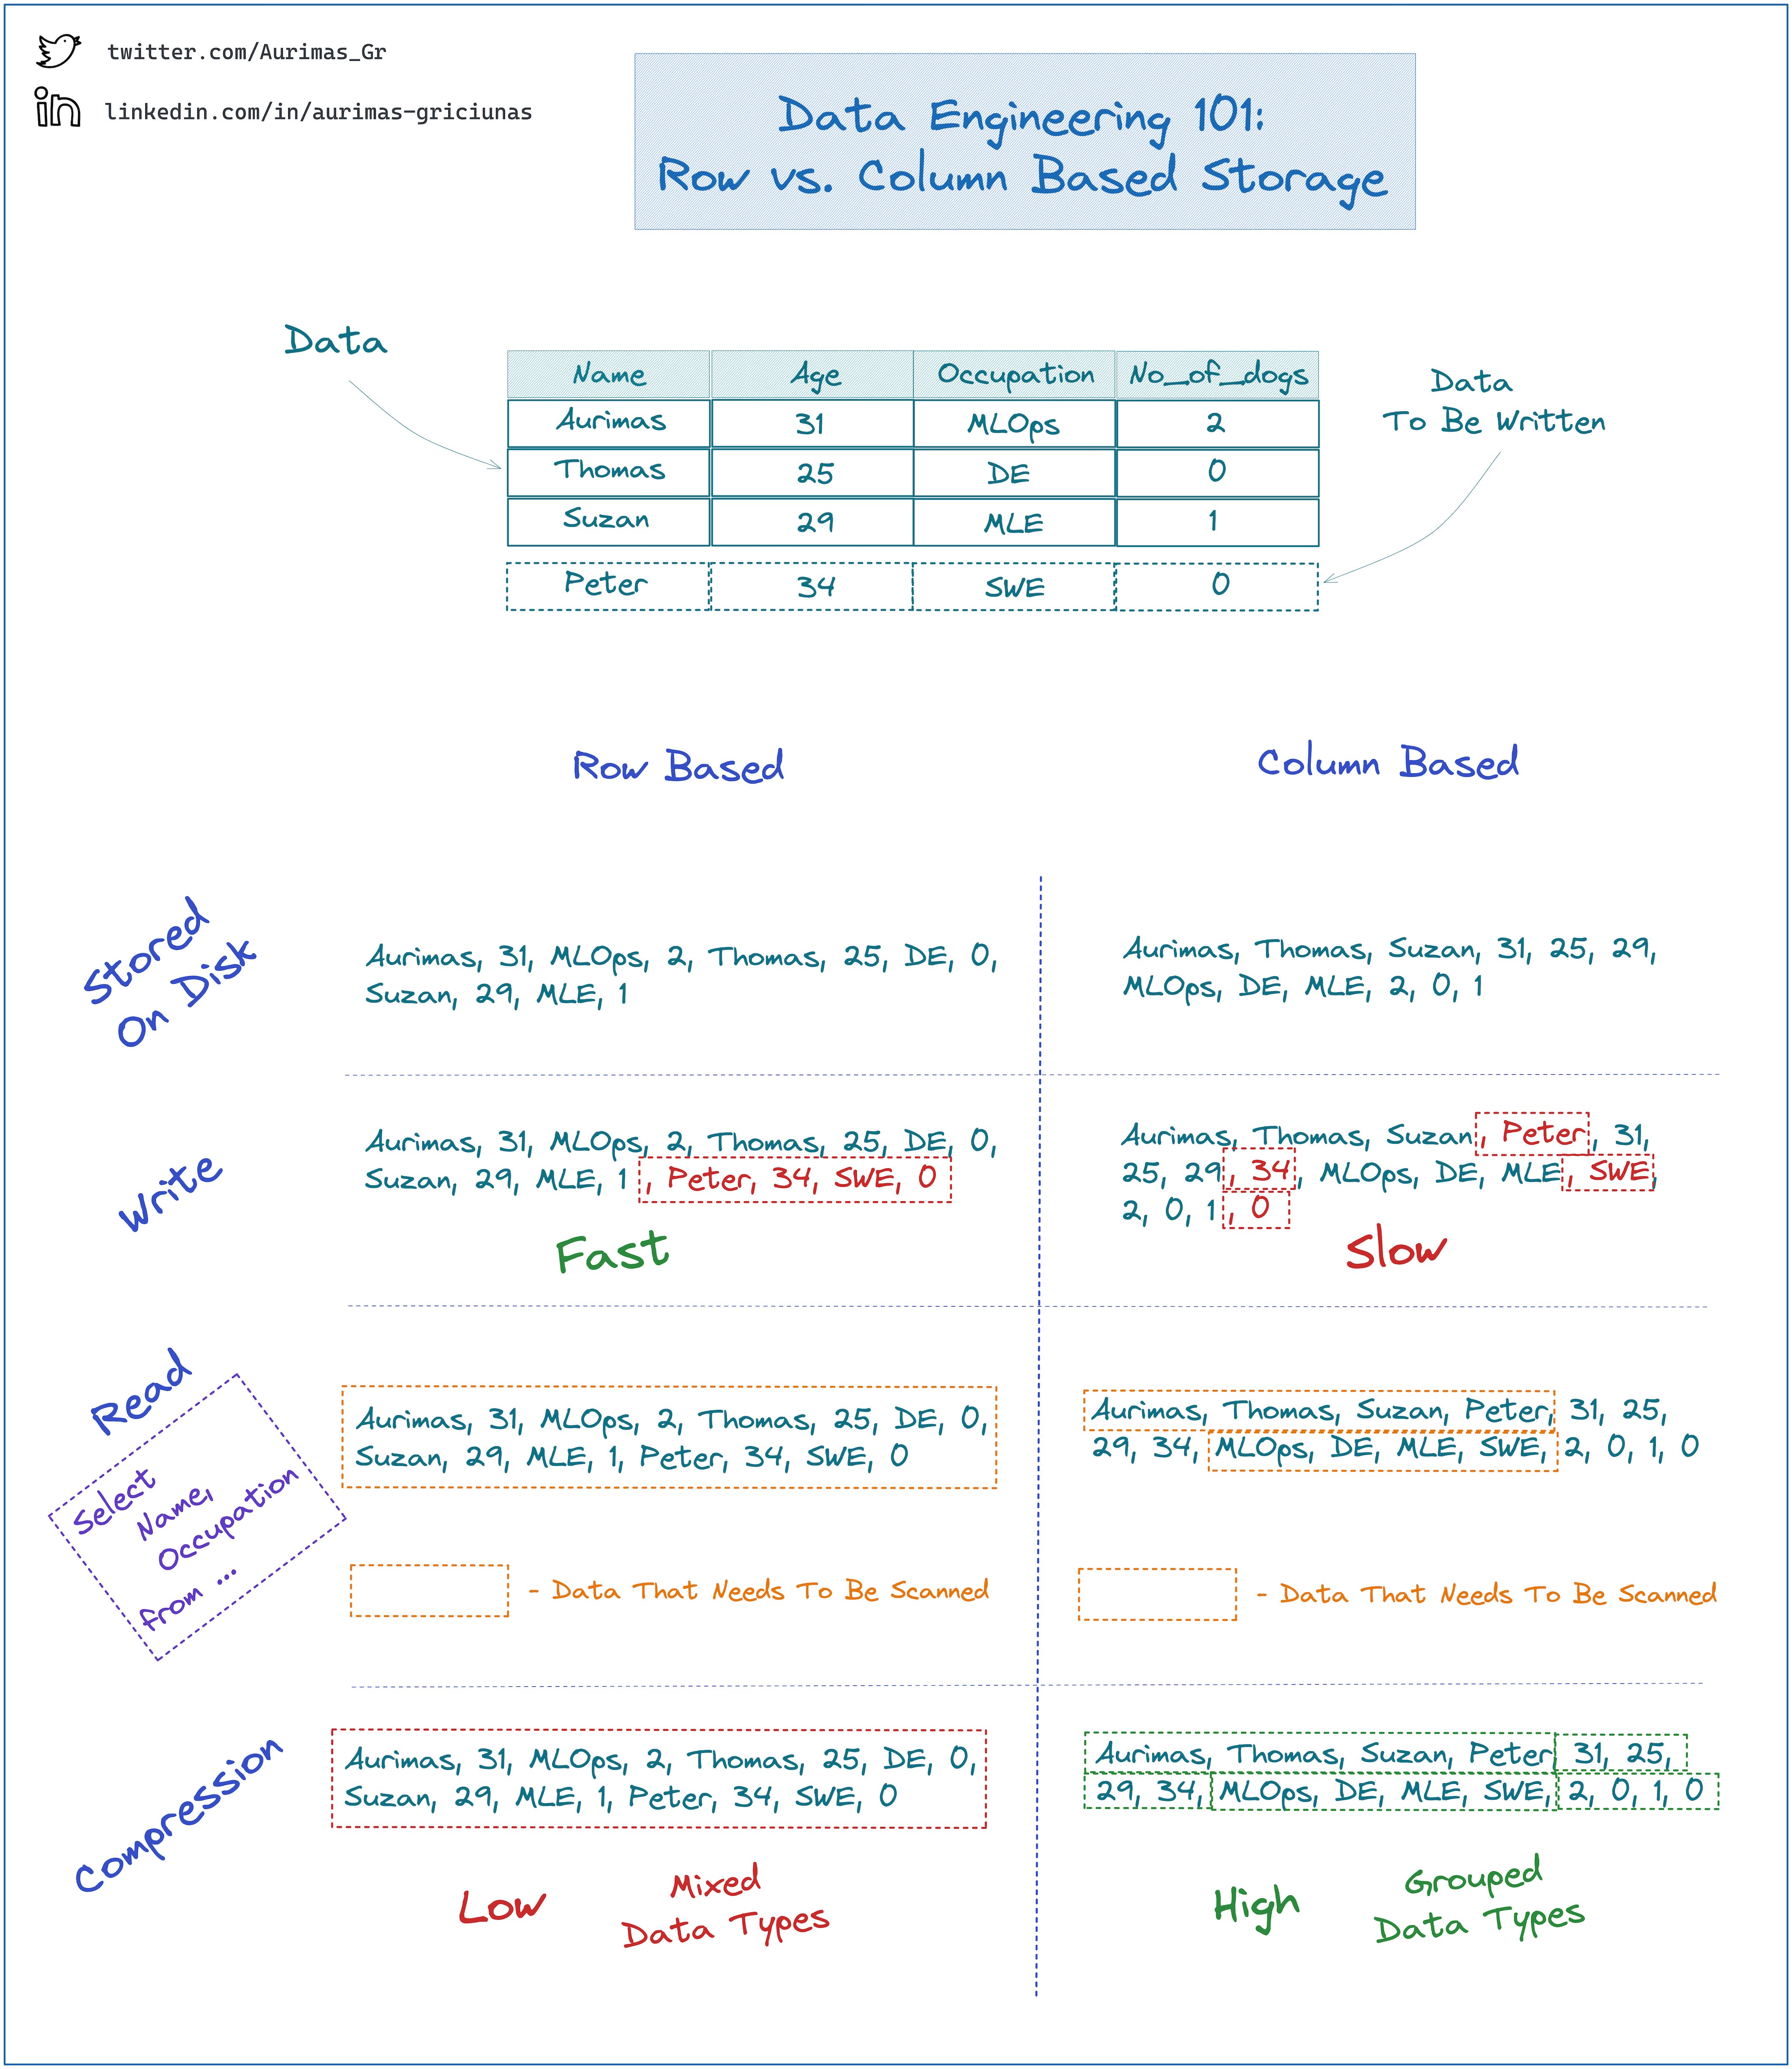 twitter.com/Aurimas_Gr
linkedin.com/in/aurimas-griciunas
Data Engineering 101:
Row vs. Column Based Storage
Data
Name Age Occupation No_of_dogs
Aurimas 31 MLOps 2
Thomas 25 DE 0
Suzan 29 MLE 1
Peter 34 SWE 0
Data
To Be Written
Row Based
Column Based
Stored
On Disk
Aurimas, 31, MLOps, 2, Thomas, 25, DE, 0,
Suzan, 29, MLE, 1
Aurimas, Thomas, Suzan, 31, 25, 29,
MLOps, DE, MLE, 2, 0, 1
Write
Aurimas, 31, MLOps, 2, Thomas, 25, DE, 0,
Suzan, 29, MLE, 1 , Peter, 34, SWE, 0
Fast
Aurimas, Thomas, Suzan, Peter, 31,
25, 29, 34, MLOps, DE, MLE, SWE,
2, 0, 1, 0
Slow
Read
Select
Name,
Occupation
from ...
Aurimas, 31, MLOps, 2, Thomas, 25, DE, 0,
Suzan, 29, MLE, 1, Peter, 34, SWE, 0
- Data That Needs To Be Scanned
Aurimas, Thomas, Suzan, Peter, 31, 25,
29, 34, MLOps, DE, MLE, SWE, 2, 0, 1, 0
- Data That Needs To Be Scanned
Compression
Aurimas, 31, MLOps, 2, Thomas, 25, DE, 0,
Suzan, 29, MLE, 1, Peter, 34, SWE, 0
Low
Mixed
Data Types
Aurimas, Thomas, Suzan, Peter, 31, 25,
29, 34, MLOps, DE, MLE, SWE, 2, 0, 1, 0
High
Grouped
Data Types